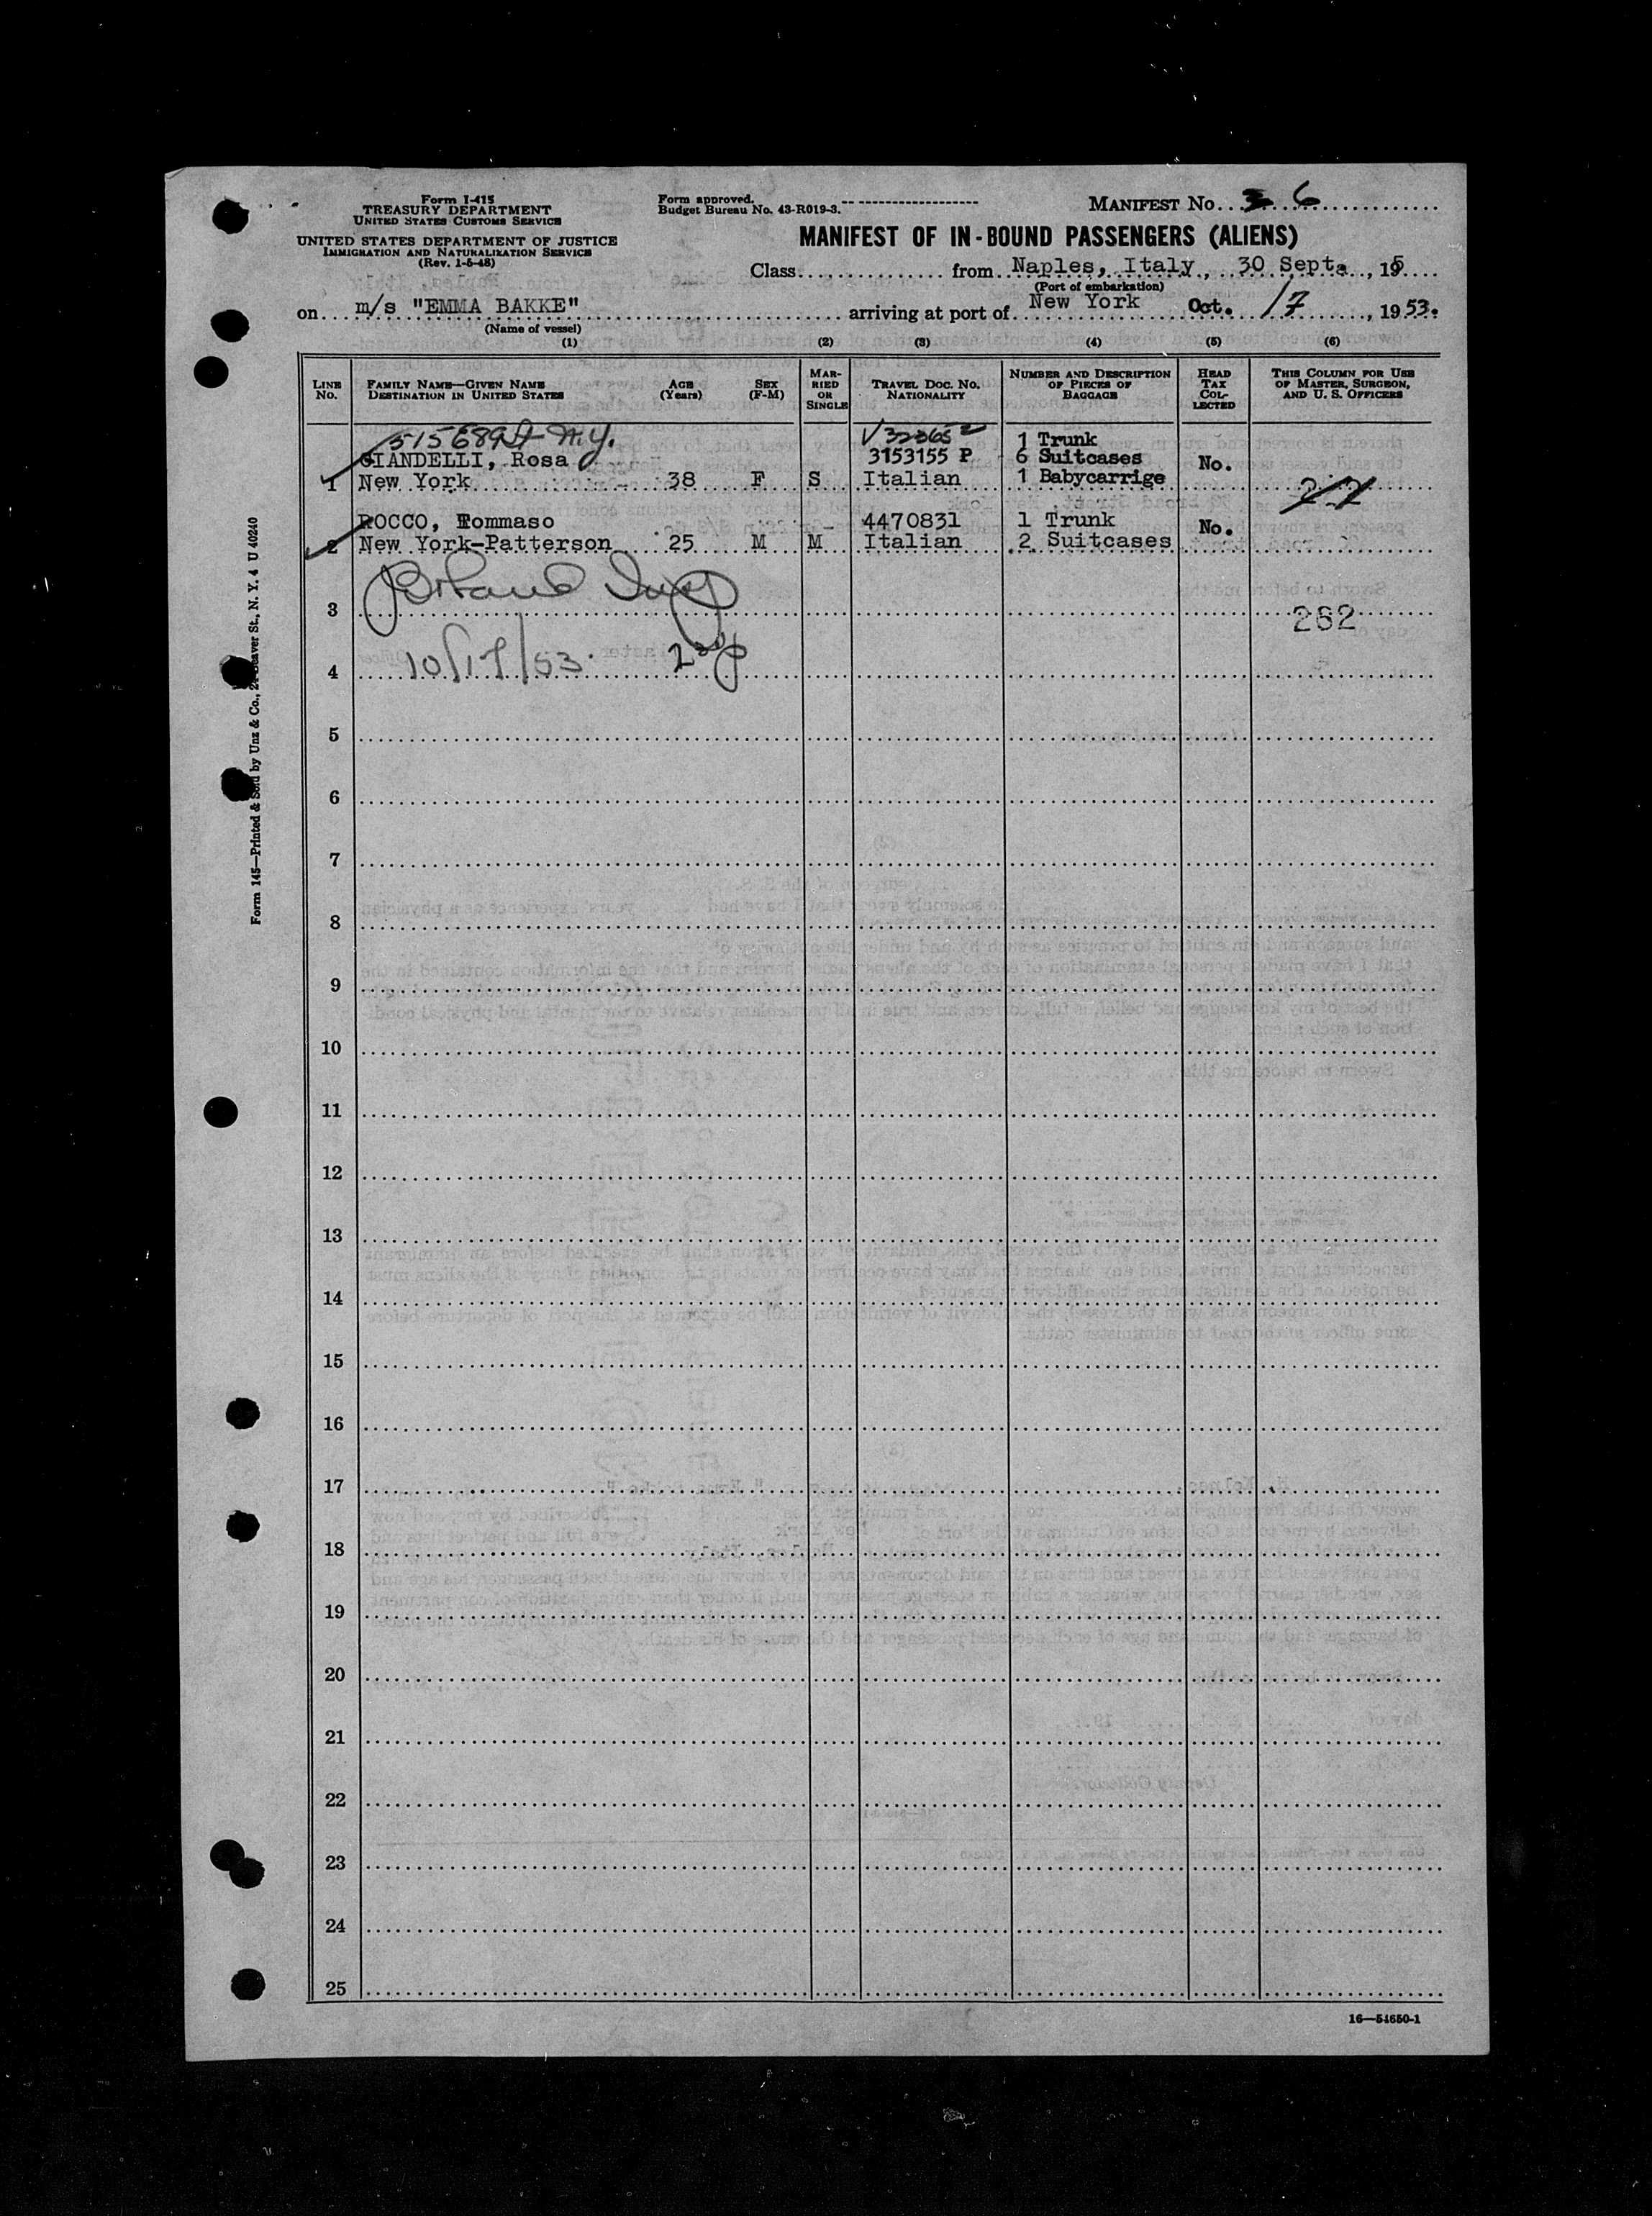 Form I-415
TREASURY DEPARTMENT
UNITED STATES CUSTOMS SERVICE
UNITED STATES DEPARTMENT OF JUSTICE
IMMIGRATION AND NATURALIZATION SERVICE
(Rev. 1-5-48)
Form approved.
Budget Bureau No. 43-R019-3.
MANIFEST No. 6
MANIFEST OF IN-BOUND PASSENGERS (ALIENS)
Class from Naples, Italy, 30 Sept., 195
(Port of embarkation)
on m/s "EMMA BAKKE" arriving at port of New York Oct. 17, 1953.
(Name of vessel)
(1) (2) (3) (4) (5) (6)
LINE No. FAMILY NAME—GIVEN NAME DESTINATION IN UNITED STATES AGE (Years) SEX (F-M) MARRIED OR SINGLE TRAVEL DOC. NO. NATIONALITY NUMBER AND DESCRIPTION OF PIECES OF BAGGAGE HEAD TAX COLLECTED THIS COLUMN FOR USE OF MASTER, SURGEON, AND U. S. OFFICERS
N.Y. 1 Trunk
GIANDELLI, Rosa 3153155 P 6 Suitcases No.
1 New York 38 F S Italian 1 Babycarrige
ROCCO, Tommaso 4470831 1 Trunk No.
2 New York-Patterson 25 M M Italian 2 Suitcases
3 262
4 10/17/53
5
6
7
8
9
10
11
12
13
14
15
16
17
18
19
20
21
22
23
24
25
16—54650-1
Form 145—Printed & Sold by Unz & Co., Beaver St., N. Y. 4 U 40240